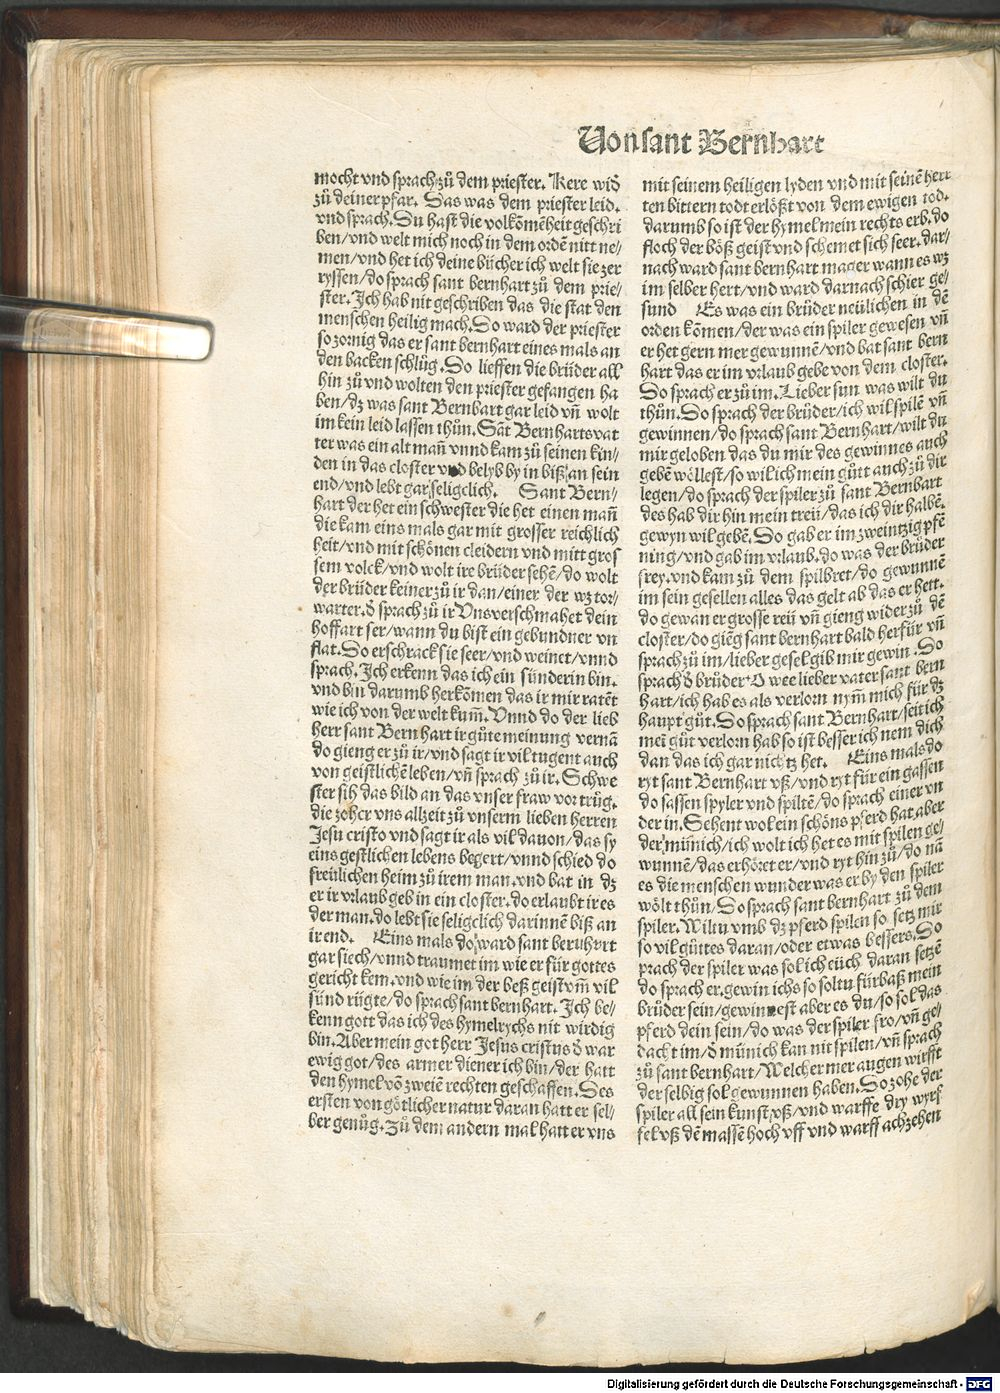 Von sant Bernhart
mocht vnd sprach zů dem priester. Kere wid̄
zů deiner pfar. Das was dem priester leid.
vnd sprach. Du hast die volkōmēheit geschri
ben/vnd welt mich noch in dem ordē nitt ne⸗
men/vnd het ich deine bücher ich welt sie zer
ryssen/do sprach sant bernhart zů dem prie⸗
ster. Ich hab nit geschriben das die stat den
menschen heilig mach. Do ward der priester
so zornig das er sant bernhart eines mals an
den backen schlůg. Do lieffen die brüder all
hin zů vnd wolten den priester gefangen ha
ben/dz was sant Bernhart gar leid vn̄ wolt
im kein leid lassen thůn. Sāt Bernharts vat
ter was ein alt man̄ vnnd kam zů seinen kin⸗
den in das closter vnd belyb by in biß an sein
end/vnd lebt gar seligclich. Sant Bern⸗
hart der het ein schwester die het einen man̄
die kam eins mals gar mit grosser reichlich
heit/vnd mit schönen cleidern vnd mitt gros
sem volck/vnd wolt ire brüder sehē/do wolt
der brüder keiner zů ir dan/einer der wz tor⸗
warter. d̄ sprach zů ir Vns verschmahet dein
hoffart ser/wann du bist ein gebundner vn
flat. Do erschrack sie seer/vnd weinet/vnnd
sprach. Ich erkenn das ich ein sünderin bin.
vnd bin darumb herkōmen das ir mir ratēt
wie ich von der welt kum̄. Vnnd do der lieb
herr sant Bernhart ir gůte meinung vernā
do gieng er zů ir/vnd sagt ir vil tugent auch
von geistlichē leben/vn̄ sprach zů ir. Schwe
ster sih das bild an das vnser fraw vor trůg.
die zoher vns allzeit zů vnserm lieben herren
Jesu cristo vnd sagt ir als vil dauon/das sy
eins gestlichen lebens begert/vnnd schied do
freülichen heim zů irem man. vnd bat in dz
er ir vrlaub geb in ein closter. do erlaubt ir es
der man. do lebt sie seligclich darinnē biß an
ir end. Eins mals do ward sant bernhart
gar siech/vnnd traumet im wie er für gottes
gericht kem. vnd wie im der beß geist vm̄ vil
sünd rügte/do sprach sant bernhart. Ich be⸗
kenn gott das ich des hymelrychs nit wirdig
bin. Aber mein got herr Jesus cristus d̄ war
ewig got/des armer diener ich bin/der hatt
den hymel vō zweiē rechten geschaffen. Des
ersten von götlicher natur daran hatt er sel⸗
ber genůg. Zů dem andern mal hatt er vns
mit seinem heiligen lyden vnd mit seinē herr
ten bittern todt erlößt von dem ewigen tod.
darumb so ist der hymel mein rechts erb. do
floch der böß geist vnd schemet sich seer. dar⸗
nach ward sant bernhart mager wann es wz
im selber hert/vnd ward darnach schier ge⸗
sund Es was ein brüder neülichen in dē
orden kōmen/der was ein spiler gewesen vn̄
er het gern mer gewunnē/vnd bat sant bern
hart das er im vrlaub gebe von dem closter.
Do sprach er zů im. Lieber sun was wilt du
thůn. Do sprach der brůder/ich wil spilē vn̄
gewinnen/do sprach sant Bernhart/wilt du
mir geloben das du mir des gewinnes auch
gebē wöllest/so wil ich mein gůtt auch zů dir
legen/do sprach der spiler zů sant Bernhart
des hab dir hin mein treü/das ich dir halbē.
gewyn wil gebē. Do gab er im zweintzig pfē
ning/vnd gab im vrlaub. do was der brůder
frey. vnd kam zů dem spilbret/do gewunnē
im sein gesellen alles das gelt ab das er hett.
do gewan er grosse reü vn̄ gieng wider zů dē
closter/do giēg sant bernhart bald herfür vn̄
sprach zů im/lieber gesel gib mir gewin. Do
sprach d̄ brůder O wee lieber vater sant bern
hart/ich hab es als verlorn nym̄ mich für dz
haupt gůt. Do sprach sant Bernhart/seit ich
mei gůt verlorn hab so ist besser ich nem dich
dan das ich gar nichtz het. Eins mals do
ryt sant Bernhart vß/vnd ryt für ein gassen
do sassen spyler vnd spiltē/do sprach einer vn
der in. Sehent wol ein schöns pferd hat aber
der münich/ich wolt ich het es mit spilen ge⸗
wunnē/das erhöret er/vnd ryt hin zů/do nā
es die menschen wunder was er by den spiler
wölt thůn/Do sprach sant bernhart zů dem
spiler. Wiltu vmb dz pferd spilen so setz mir
so vil gůttes daran/oder etwas bessers. Do
prach der spiler was sol ich eüch daran setzē
do sprach er. gewin ichs so soltu fürbaß mein
brůder sein/gewinnest aber es du/so sol das
pferd dein sein/do was der spiler fro/vn̄ ge⸗
dacht im/d̄ münich kan nit spilen/vn̄ sprach
zů sant bernhart/Welcher mer augen wirfft
der selbig sol gewunnen haben. Do zohe der
spiler all sein kunst vß/vnd warffe dry wyrf
fel vß dē massē hoch vff vnd warff achzehen
Digitalisierung gefördert durch die Deutsche Forschungsgemeinschaft - DFG